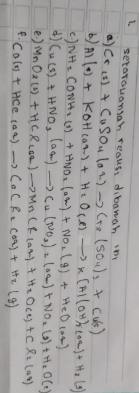 1. setarakanlah reaksi dibawah ini
a) Cr(s) + CuSO4(aq) → Cr2(SO4)3 + Cu(s)
b) Al(s) + KOH(aq) + H2O(l) → K[Al(OH)4](aq) + H2(g)
c) NH2CONH2(s) + HNO2(aq)
d) Cu(s) + HNO3(aq) → Cu(NO3)2(aq) + NO2(g) + H2O(l)
e) MnO2(s) + HCl(aq) → MnCl2(aq) + H2O(l) + Cl2(g)
f. Ca(s) + HCl(aq) → CaCl2(aq) + H2(g)